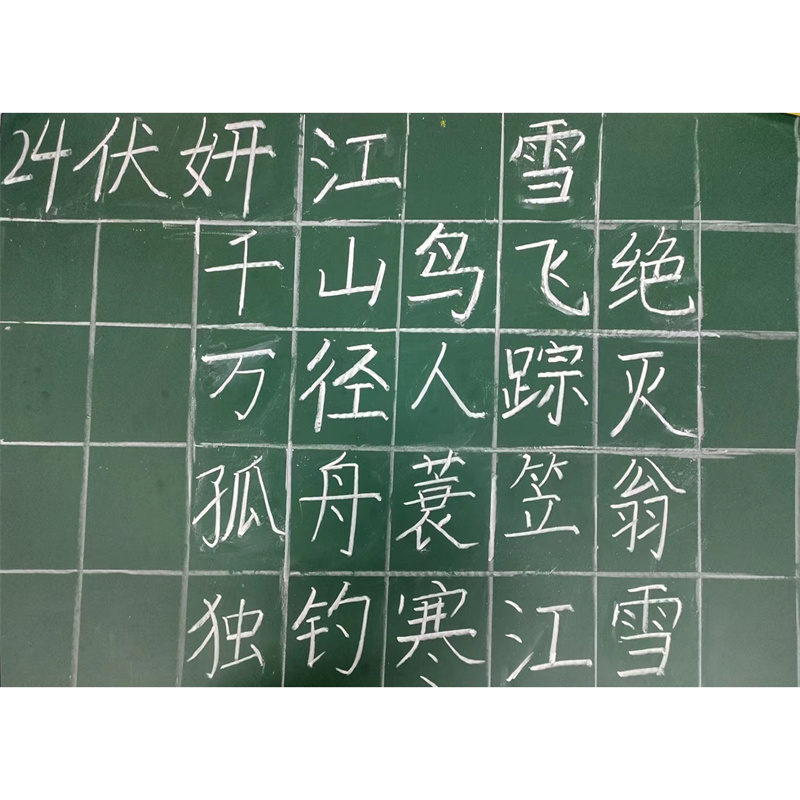 24伏妍 江 雪
千山鸟飞绝
万径人踪灭
孤舟蓑笠翁
独钓寒江雪